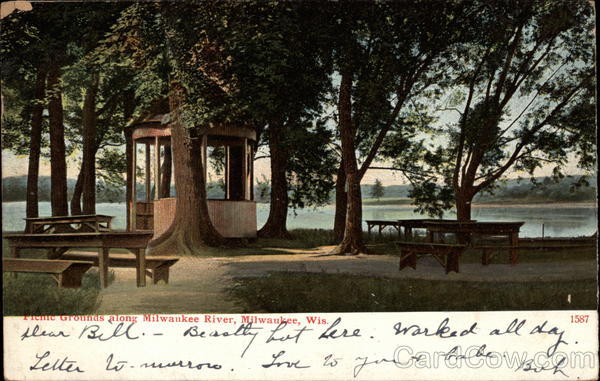 Picnic Grounds along Milwaukee River, Milwaukee, Wis. 1587
Dear Bill. — Beastly hot here. Worked all day.
Letter to-morrow. Love to you
Bob.
CardCow.com